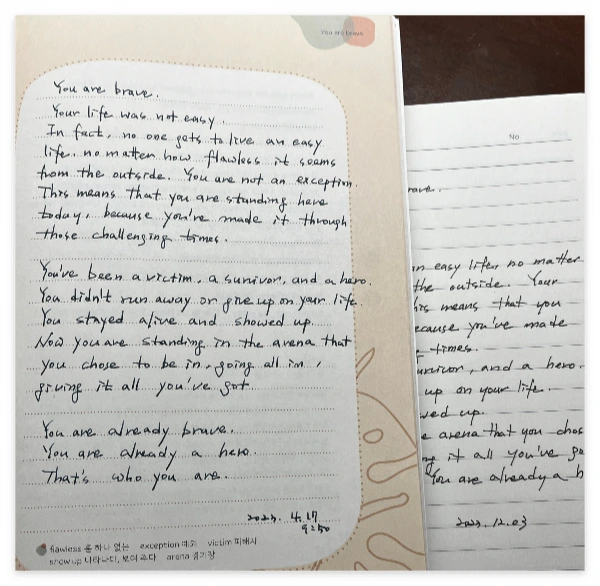 You are brave
You are brave.
Your life was not easy.
In fact, no one gets to live an easy
life, no matter how flawless it seems
from the outside. You are not an exception.
This means that you are standing here
today, because you've made it through
those challenging times.
You've been a victim, a survivor, and a hero.
You didn't run away or give up on your life.
You stayed alive and showed up.
Now you are standing in the arena that
you chose to be in, going all in,
giving it all you've got.
You are already brave.
You are already a hero.
That's who you are.
4.17
flawless 흠 하나 없는 exception 예외 victim 피해자
show up 나타나다, 보여 주다 arena 경기장
No.
rave.
an easy life, no matter
the outside. Your
his means that you
ecause you've made
times.
urvivor, and a hero.
up on your life.
wed up.
e arena that you chos
ng it all you've go
You are already a h
12.03